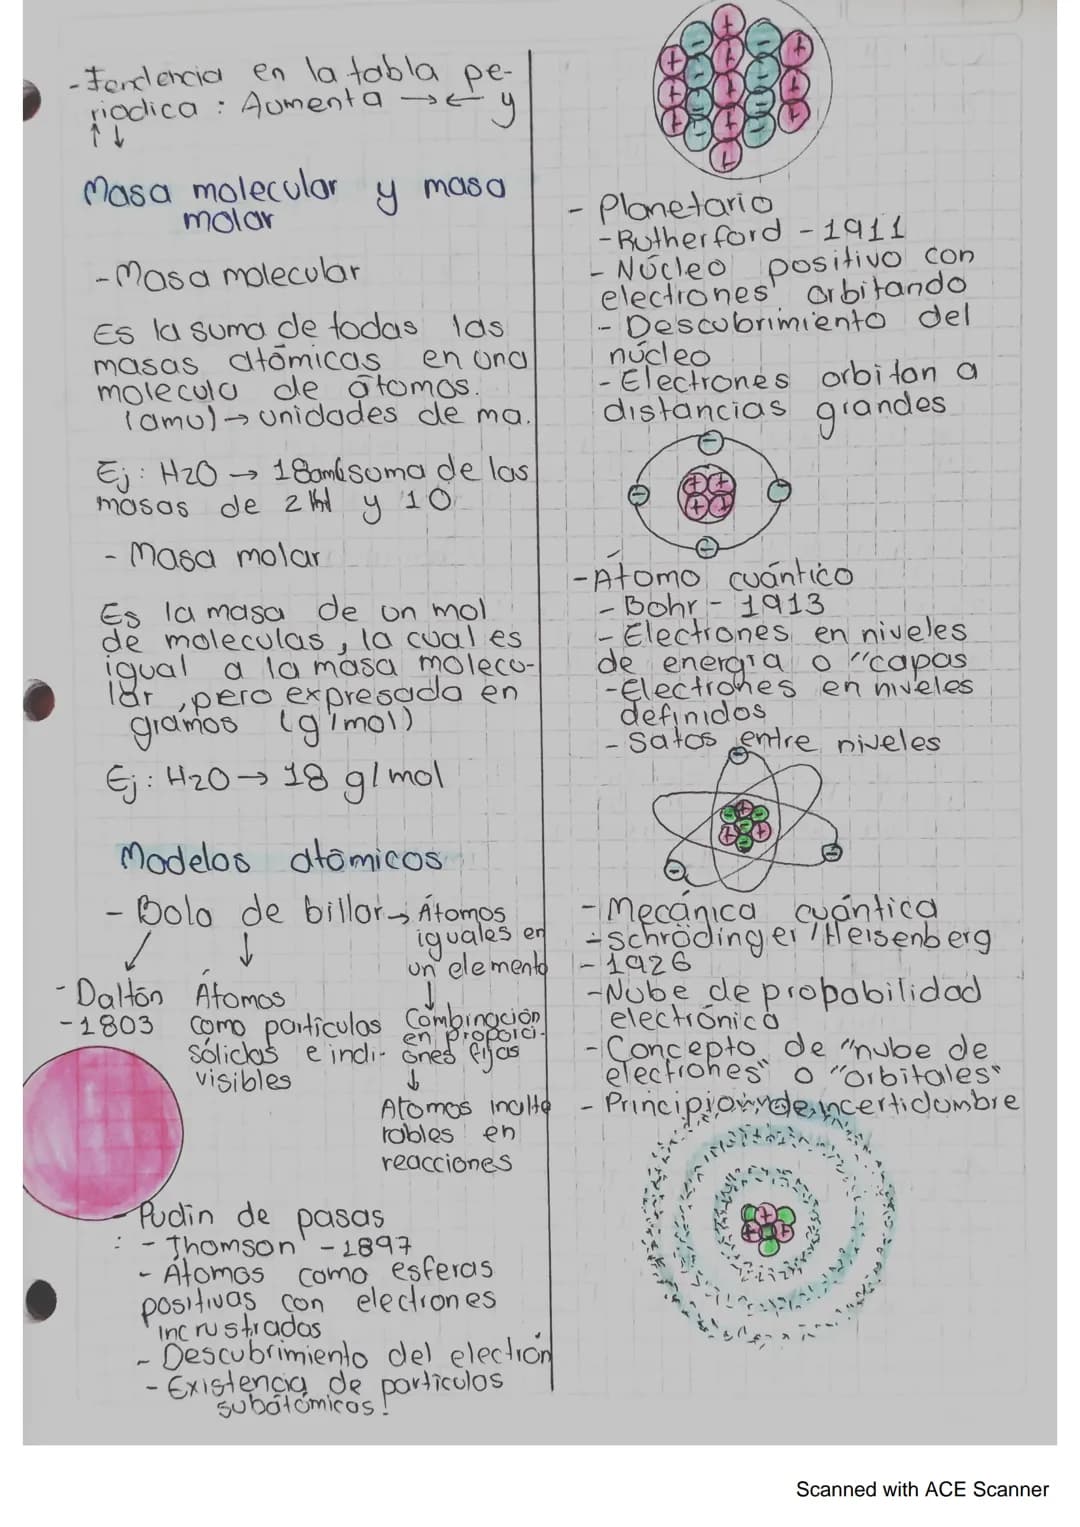 - Tendencia en la tabla pe-
riodica : Aumenta →← y
↑↓
Masa molecular y masa
molar
- Masa molecular
Es la suma de todas las
masas atómicas en una
molecula de átomos.
(amu) → unidades de ma.
Ej: H2O → 18amu suma de las
masas de 2 H y 1 O
- Masa molar
Es la masa de un mol
de moleculas, la cual es
igual a la masa molecu-
lar, pero expresada en
gramos (g/mol)
Ej: H2O → 18 g/mol
Modelos atómicos
- Bola de billar → Átomos
iguales en
un elemento
↓
Combinación
en proporci-
ones fijas
↓
Atomos inalte
rables en
reacciones
- Dalton
- 1803
Átomos
como partículas
sólidas e indi-
visibles
- Pudin de pasas
: - Thomson - 1897
- Átomos como esferas
positivas con electrones
incrustrados
- Descubrimiento del electrón
- Existencia de particulas
subatómicas!
- Planetario
- Rutherford - 1911
- Núcleo positivo con
electrones orbitando
- Descubrimiento del
núcleo
- Electrones orbitan a
distancias grandes
- Átomo cuántico
- Bohr - 1913
- Electrones en niveles
de energía o "capas
- Electrones en niveles
definidos
- Satos entre niveles
- Mecánica cuántica
- Schrödinger / Heisenberg
- 1926
- Nube de probabilidad
electrónica
- Concepto de "nube de
electrones" o "orbitales"
- Principio de incertidumbre
Scanned with ACE Scanner